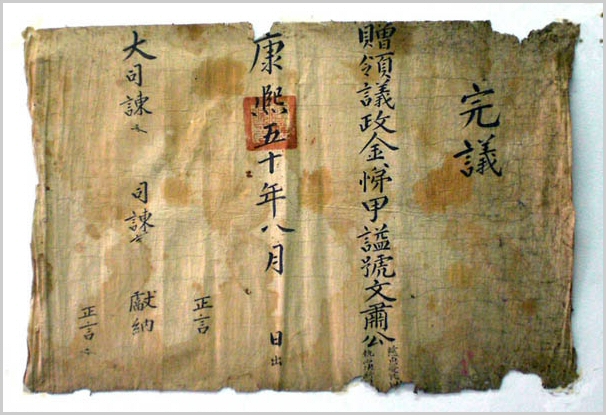 完議
贈領議政金悌甲謚號文肅公
康熙五十年八月 日出
正言
大司諫 司諫 獻納
正言